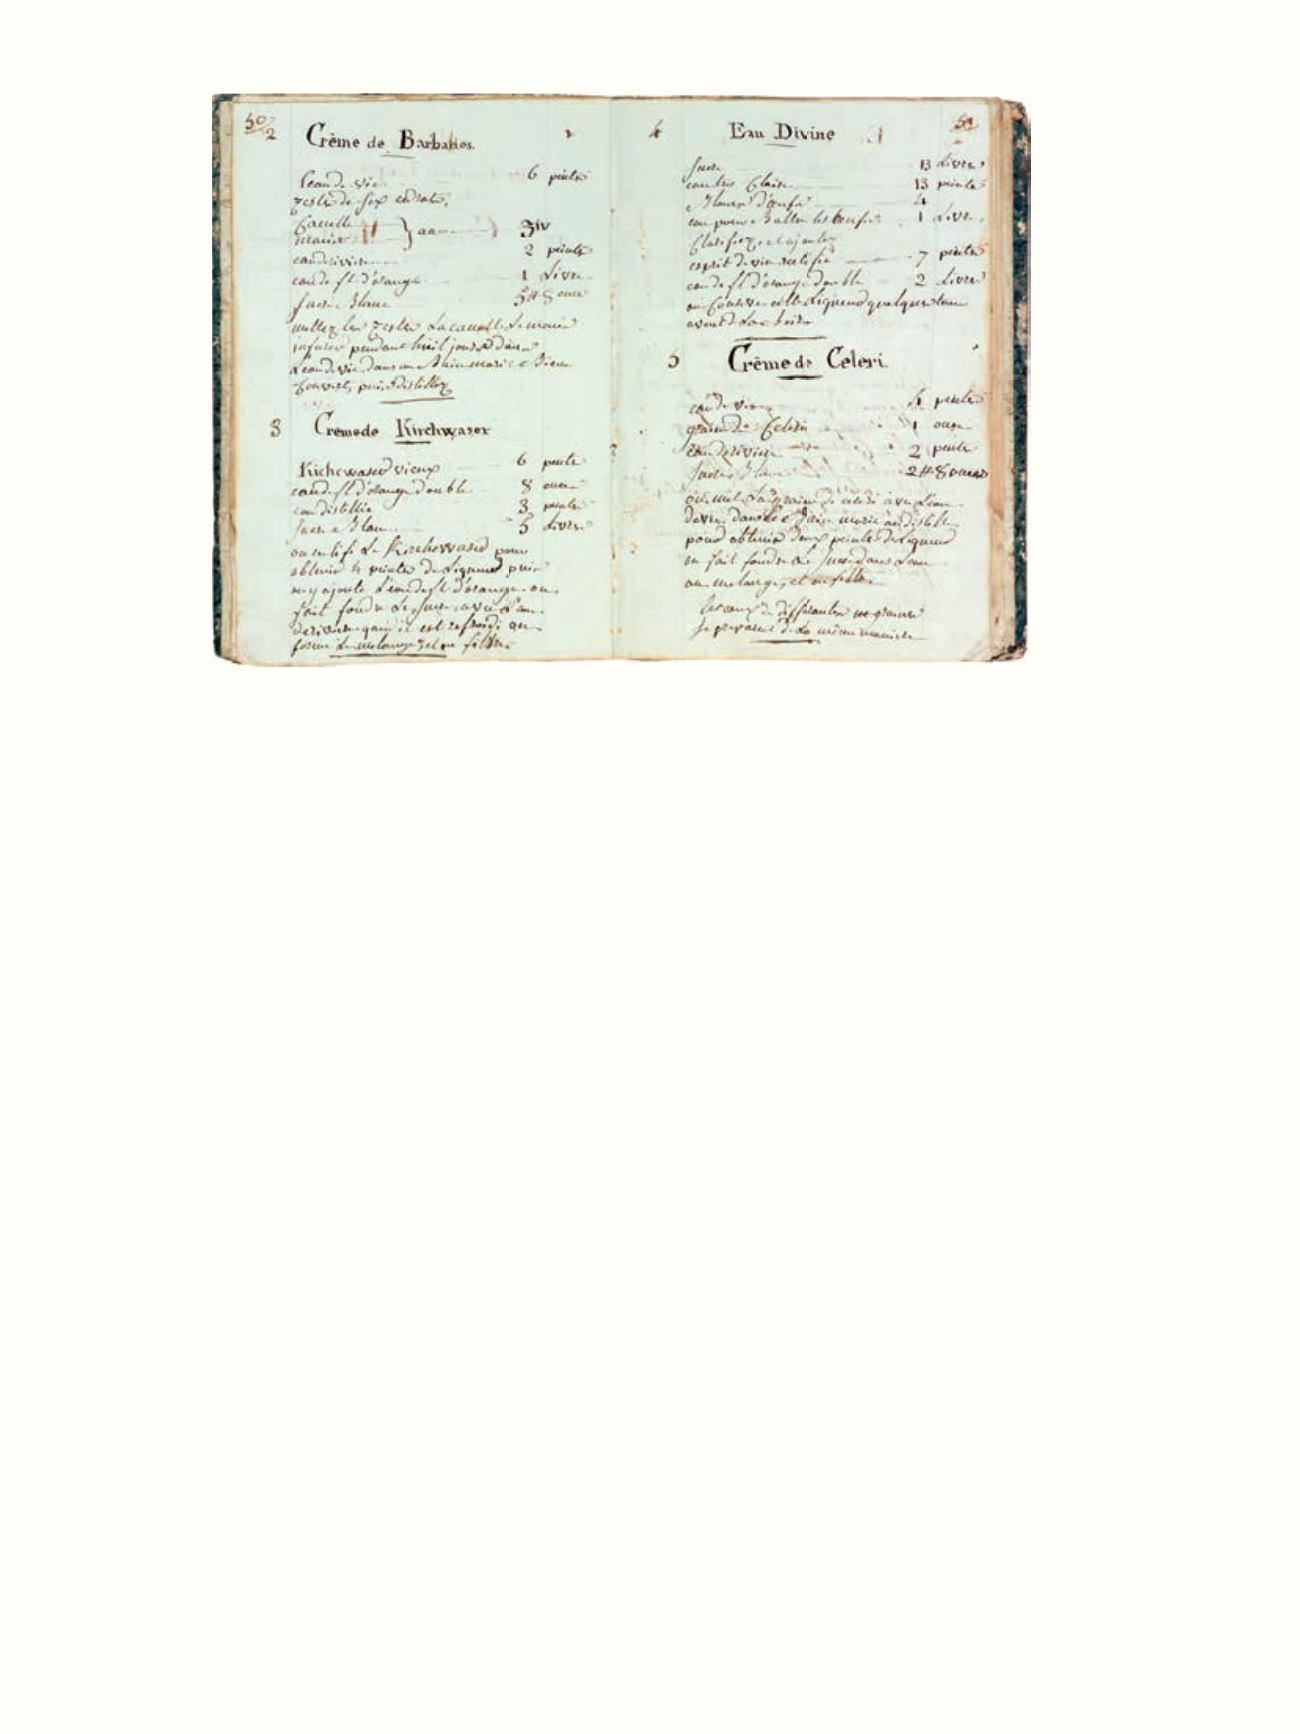 50
2 Crême de Barbades.
l'eau de vie 6 peinte
zeste de six cedrats
Canelle
macis } aa 3iv
eau de rivier 2 peinte
eau de fl d'orange 1 Livre
sucre Blanc 5# 8 once
mettez les zestes La canelle Le macis
infuser pendant huit jours dans
L'eau de vie dans un Bain marie Bien
Couvert, puis distillez
3 Creme de Kirchwaser
Kirchewaser vieux 6 peinte
eau de fl d'orange double 8 once
eau distillée 3 peinte
sucre Blanc 5 Livre
on rectifi Le Kirchewaser pour
obtenir 4 peinte de Liqueur puis
on y ajoute L'eau de fl d'orange on
fait fondre Le sucre avec L'eau
de rivier quan il est refroidi on
forme Le melange et on filtre
51
4 Eau Divine
sucre 13 Livre
eau très Claire 13 peinte
Blancs d'œufs 4
eau pour Battre les œufs 1 Livre
Clarifiez et ajoutez
esprit de vin rectifié 7 peinte
eau de fl d'orange double 2 Livre
on Conserve cette Liqueur quelque tems
avant de La boire
5 Crême de Celeri
eau de vie 4 peinte
graine de Celeri 1 once
eau de rivier 2 peinte
sucre Blanc 2# 8 onces
on met La graine de celeri avec L'eau
de vie dans Le Bain marie on distille
pour obtenir deux peinte de Liqueur
on fait fondre Le sucre dans L'eau
on melange, et on filtre
de différentes graine
se prepare de La même maniere